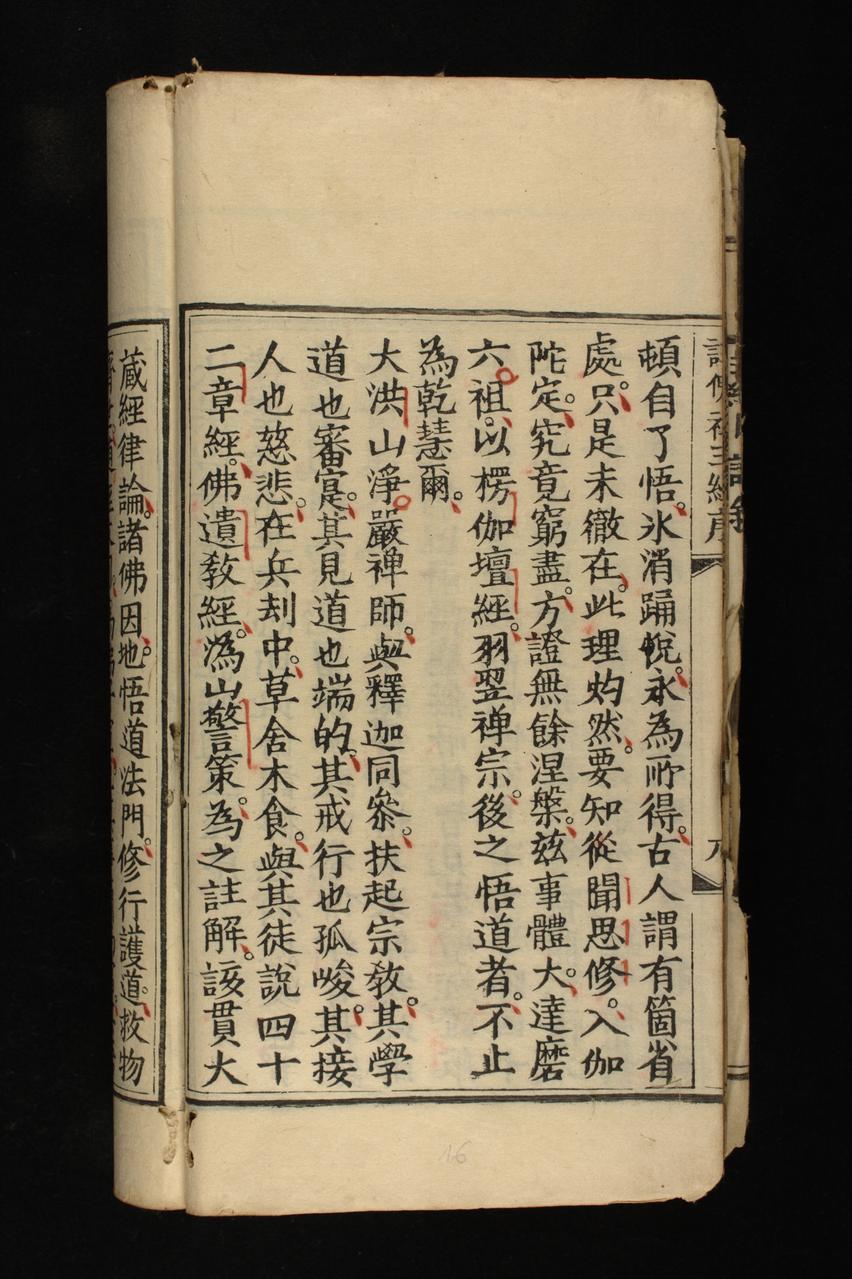 頓自了悟。氷消踊悅。永為所得。古人謂有箇省
處。只是未徹在。此理灼然。要知從聞思修。入伽
陀定。究竟窮盡。方證無餘涅槃。茲事體大。達磨
六祖。以楞伽壇經。羽翌禅宗。後之悟道者。不止
為乾慧爾。
大洪山淨嚴禅師。與釋迦同參。扶起宗教。其學
道也審寔。其見道也端的。其戒行也孤峻。其接
人也慈悲。在兵刦中。草舍木食。與其徒說四十
二章經。佛遺教經。溈山警策。為之註解。該貫大
藏經律論。諸佛因地。悟道法門。修行護道。救物